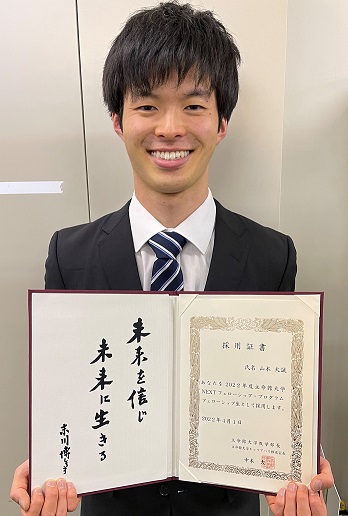 未来を信じ
未来に生きる
末川博
採用証書
氏名 山本 大誠
あなたを2022年度立命館大学
NEXTフェローシップ・プログラム
フェローシップ生として採用します。
2022年4月1日